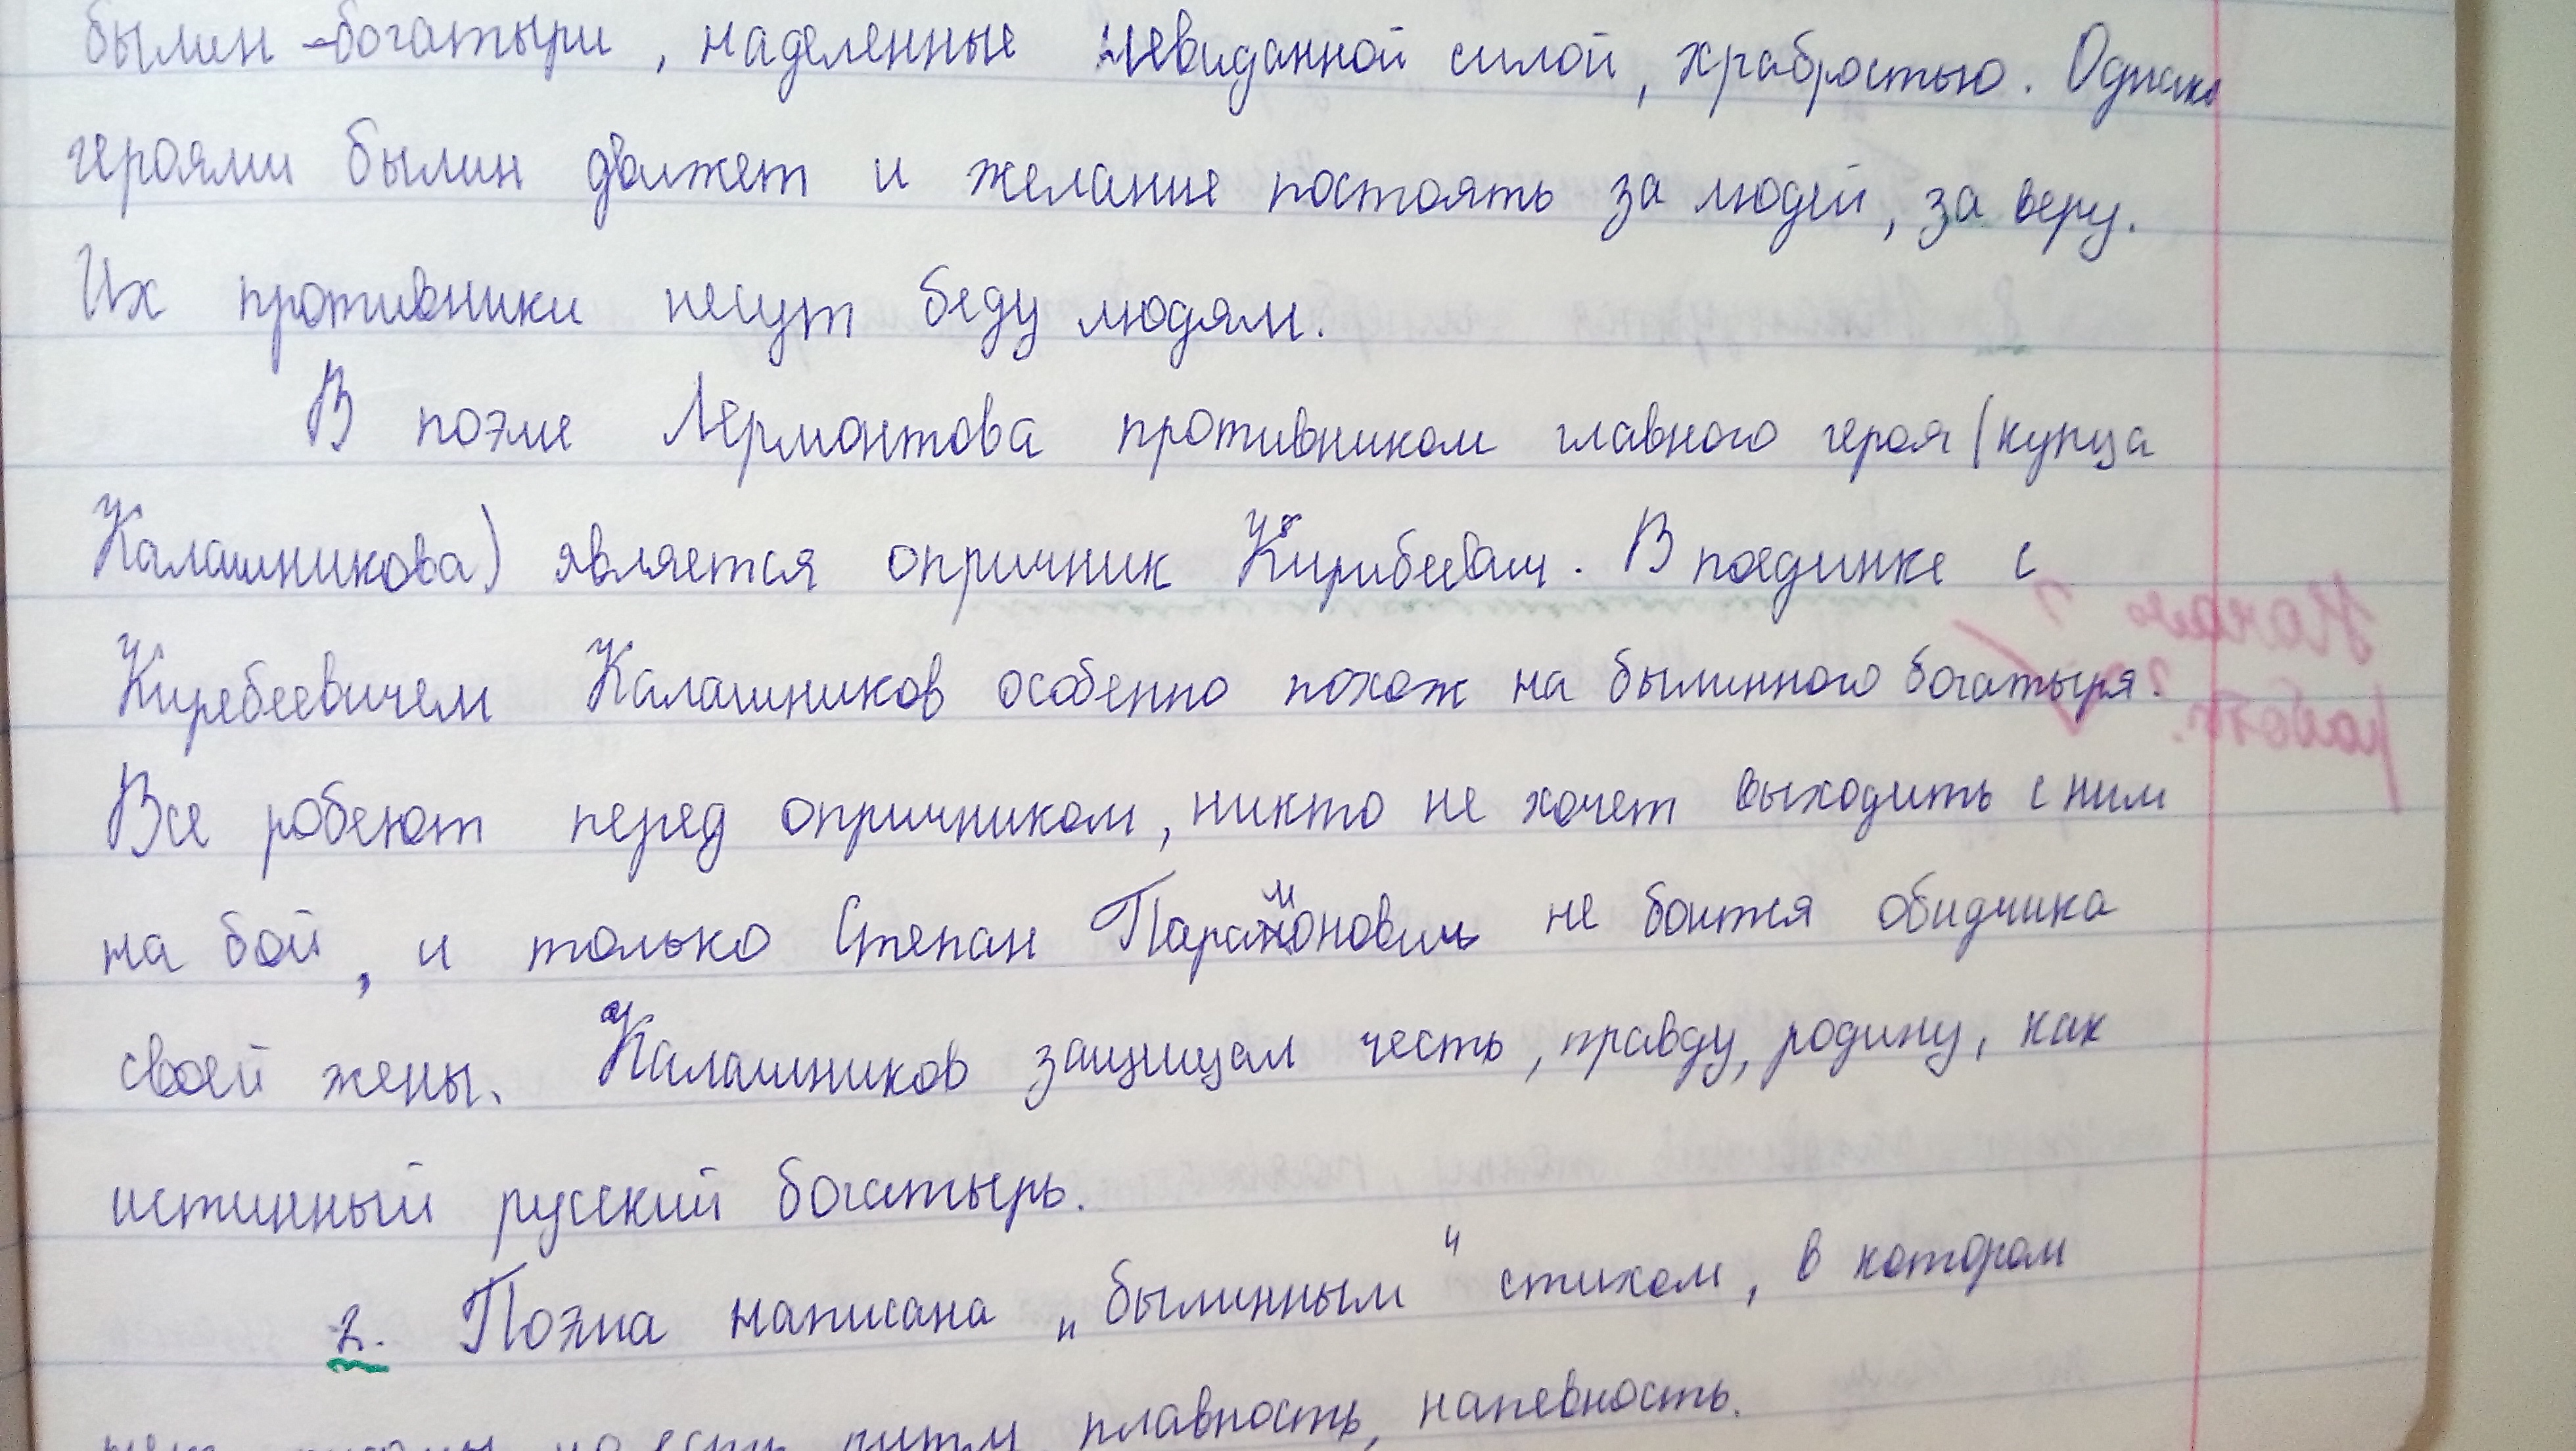 былин - богатыри, наделенные невиданной силой, храбростью. Однако
героями былин движет и желание постоять за людей, за веру.
Их противники несут беду людям.
В поэме Лермонтова противником главного героя (купца
Калашникова) является опричник Кирибеевич. В поединке с
Киребеевичем Калашников особенно похож на былинного богатыря.
Все робеют перед опричником, никто не хочет выходить с ним
на бой, и только Степан Парамонович не боится обидчика
своей жены. Калашников защищал честь, правду, родину, как
истинный русский богатырь.
2. Поэма написана „былинным" стихом, в котором
но есть ритм плавность, напевность.